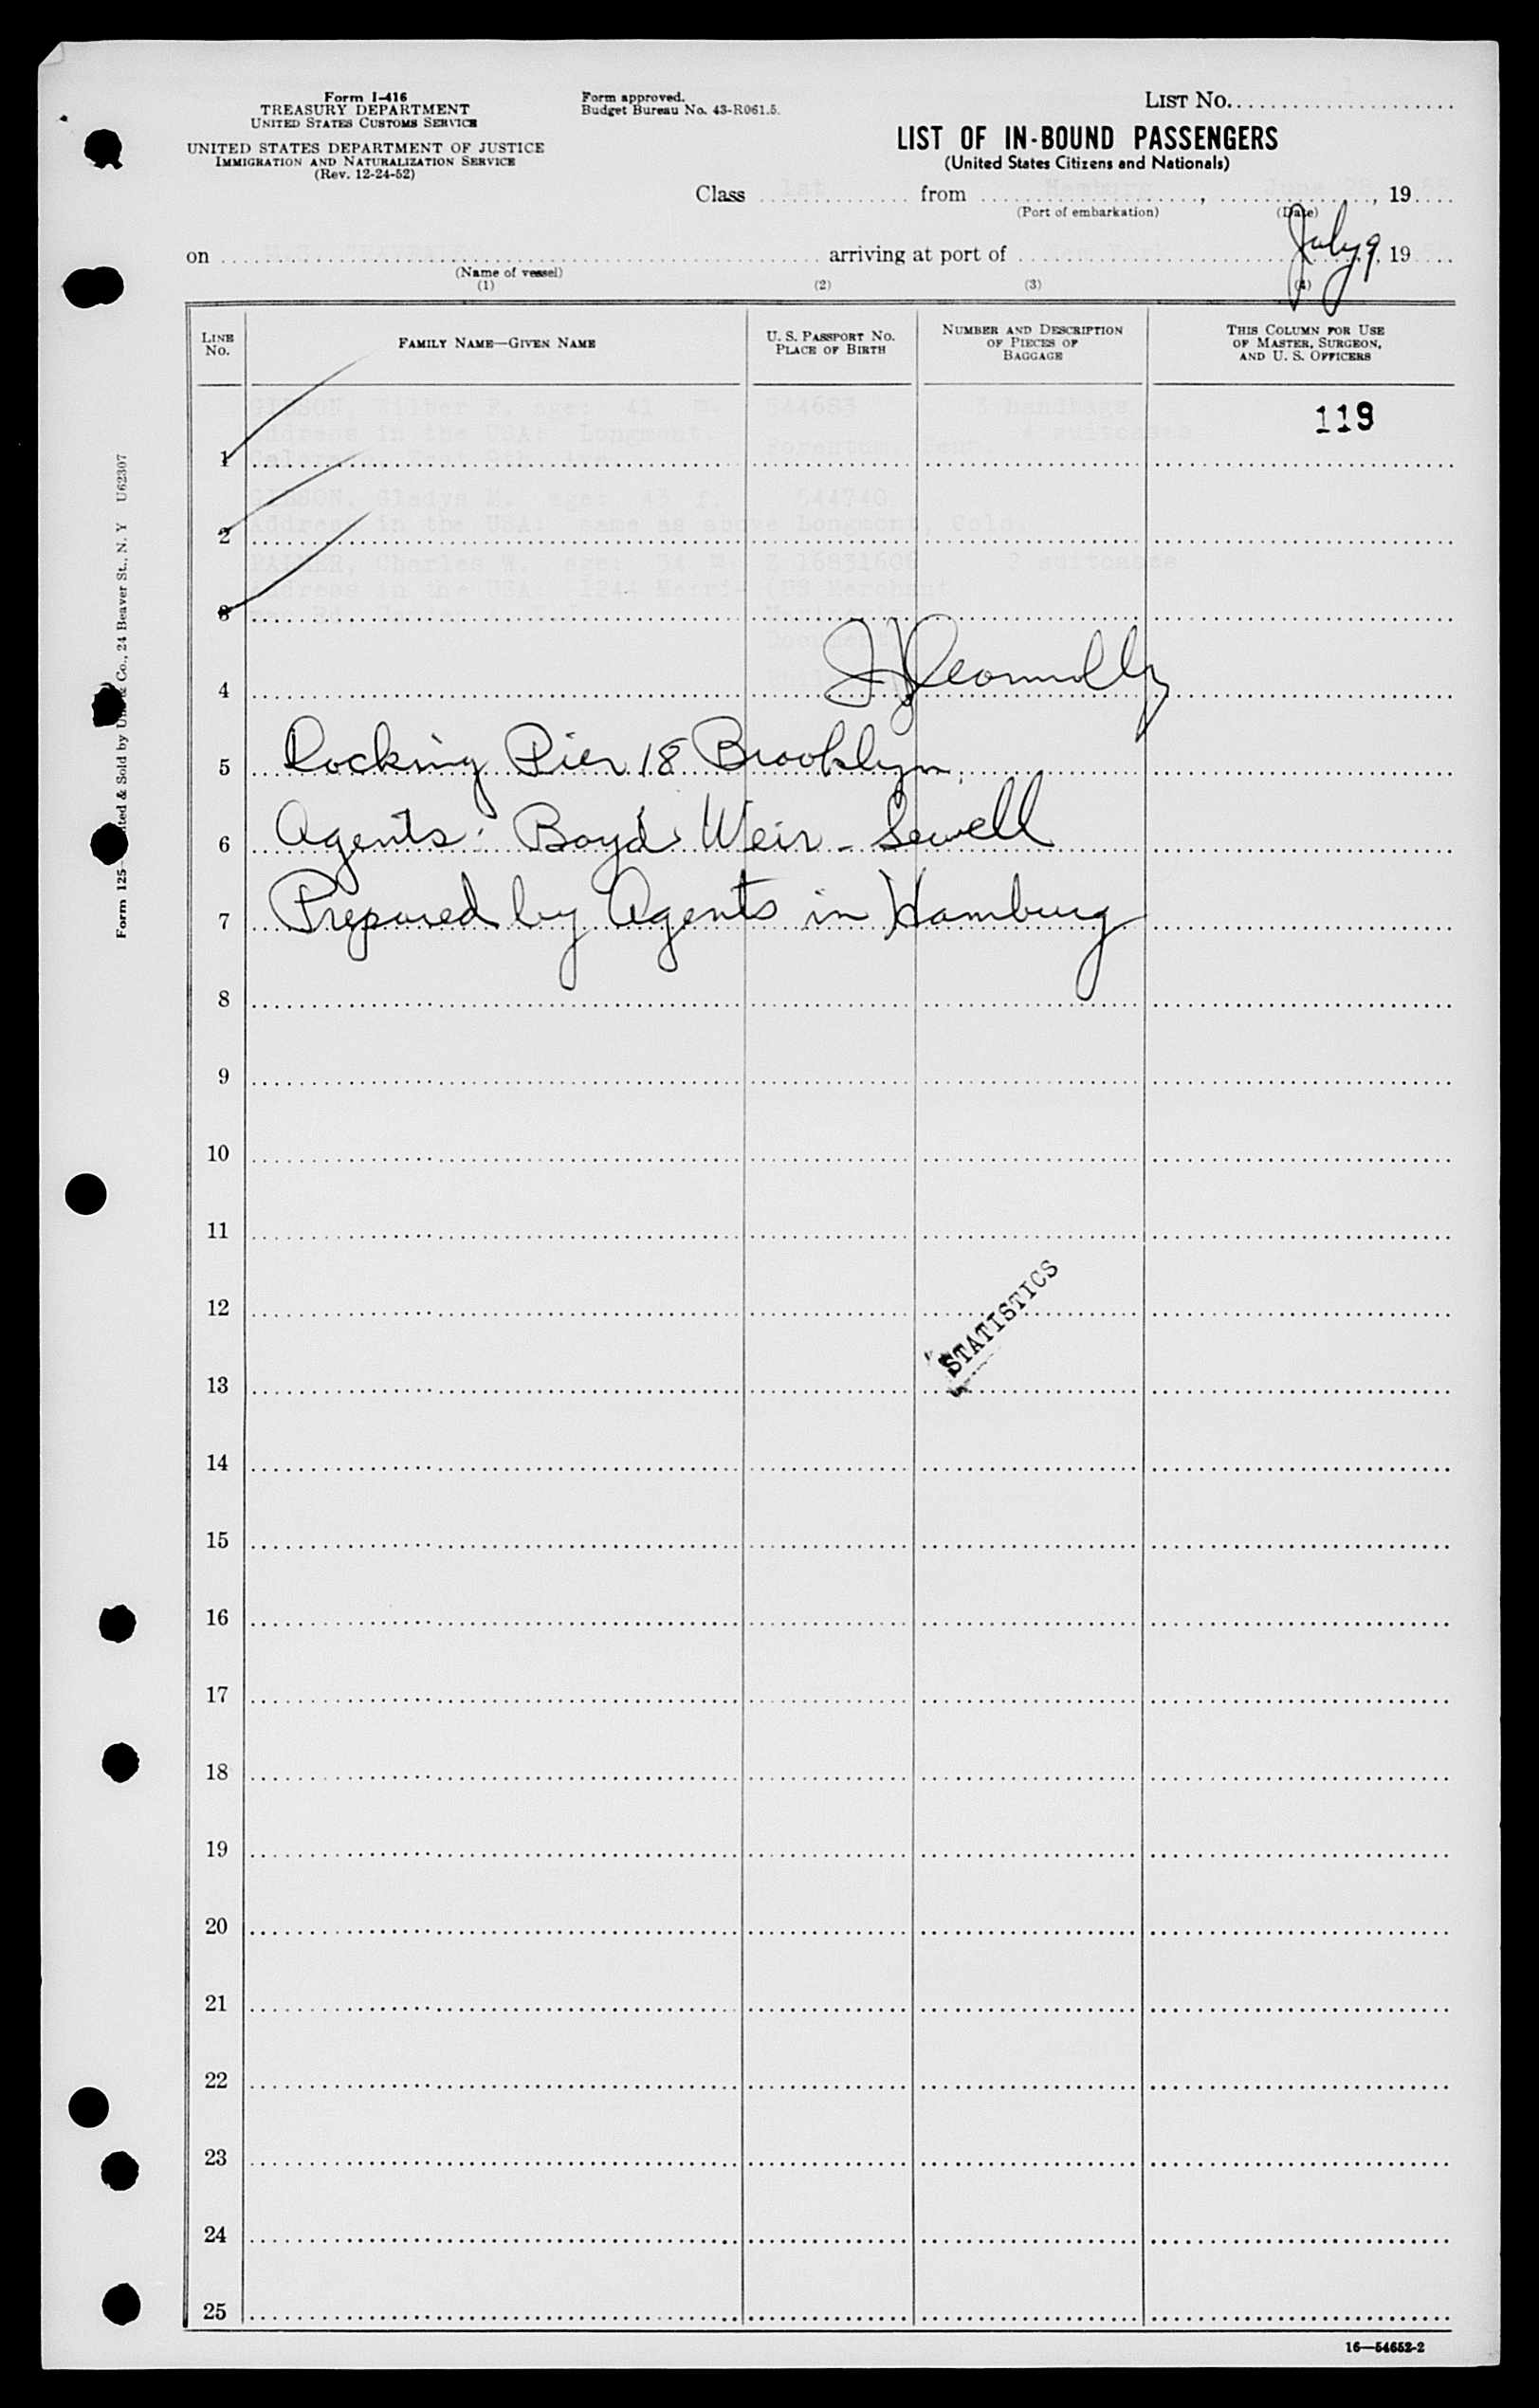 Form I-416
TREASURY DEPARTMENT
UNITED STATES CUSTOMS SERVICE
UNITED STATES DEPARTMENT OF JUSTICE
IMMIGRATION AND NATURALIZATION SERVICE
(Rev. 12-24-52)
Form approved.
Budget Bureau No. 43-R061.5.
LIST NO.
LIST OF IN-BOUND PASSENGERS
(United States Citizens and Nationals)
Class 1st from Hamburg, June, 19
(Port of embarkation) (Date)
on arriving at port of July 9, 19
(Name of vessel)
(1) (2) (3) (4)
LINE No.
FAMILY NAME—GIVEN NAME
U. S. PASSPORT NO. PLACE OF BIRTH
NUMBER AND DESCRIPTION OF PIECES OF BAGGAGE
THIS COLUMN FOR USE OF MASTER, SURGEON, AND U. S. OFFICERS
GIBSON, Wilber F. age: 41 m. 544683 3 handbags
Address in the USA: Longmont, 4 suitcases
1
119
GIBSON, Gladys M. age: 45 f. 544740
Address in the USA: same as above Longmont, Colo.
2
PALMER, Charles W. age: 54 m. Z 16831608 2 suitcases
Address in the USA 1244 (US Merchant
3
4
5 Docking Pier 18 Brooklyn
6 Agents: Boyd Weir - Sewell
7 Prepared by Agents in Hamburg
8
9
10
11
12
STATISTICS
13
14
15
16
17
18
19
20
21
22
23
24
25
16—54652-2
Form 125
& Sold by Co., 24 Beaver St., N. Y U62307